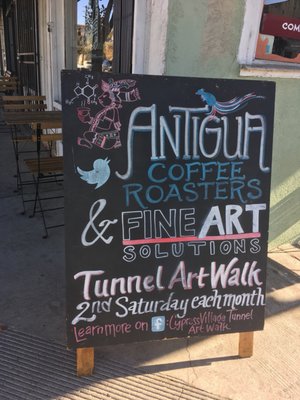 COM
ANTIGUA
COFFEE
ROASTERS
& FINE ART
SOLUTIONS
Tunnel Art Walk
2nd Saturday each month
Learn more on f: Cypress Village Tunnel
Art Walk